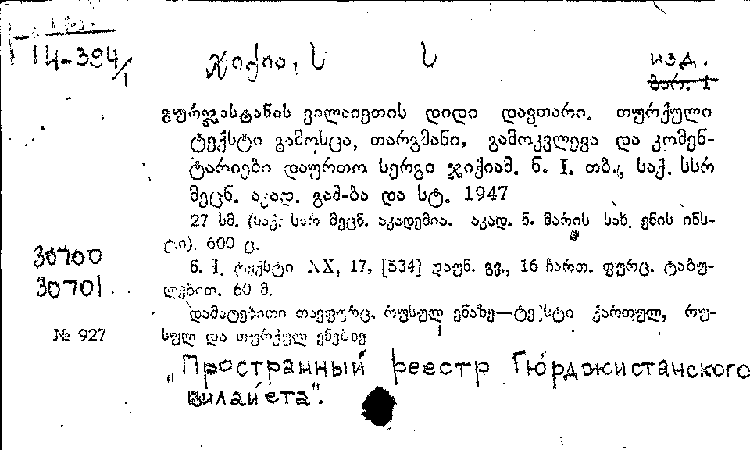 14-394/1
ჯიქია, ს ს
изд.
გურჯისტანის ვილაიეთის დიდი დავთარი. თურქული
ტექსტი გამოსცა, თარგმანი, გამოკვლევა და კომენ-
ტარიები დაურთო სერგი ჯიქიამ. წ. I. თბ., საქ. სსრ
მეცნ. აკად. გამ-ბა და სტ. 1947
27 სმ. (საქ. სსრ მეცნ. აკადემია. აკად. ნ. მარის სახ. ენის ინს-
ტი). 600 ც.
წ. I. ტექსტი XX, 17, [534] დაუნ. გვ., 16 ჩართ. ფურც. ტაბუ-
ლებით. 60 მ.
დამატებითი თავფურც. რუსულ ენაზე—ტექსტი ქართულ, რუ-
სულ და თურქულ ენებზე
30700
30701
№ 927
„Пространный реестр Гюрджистанского
вилайета".